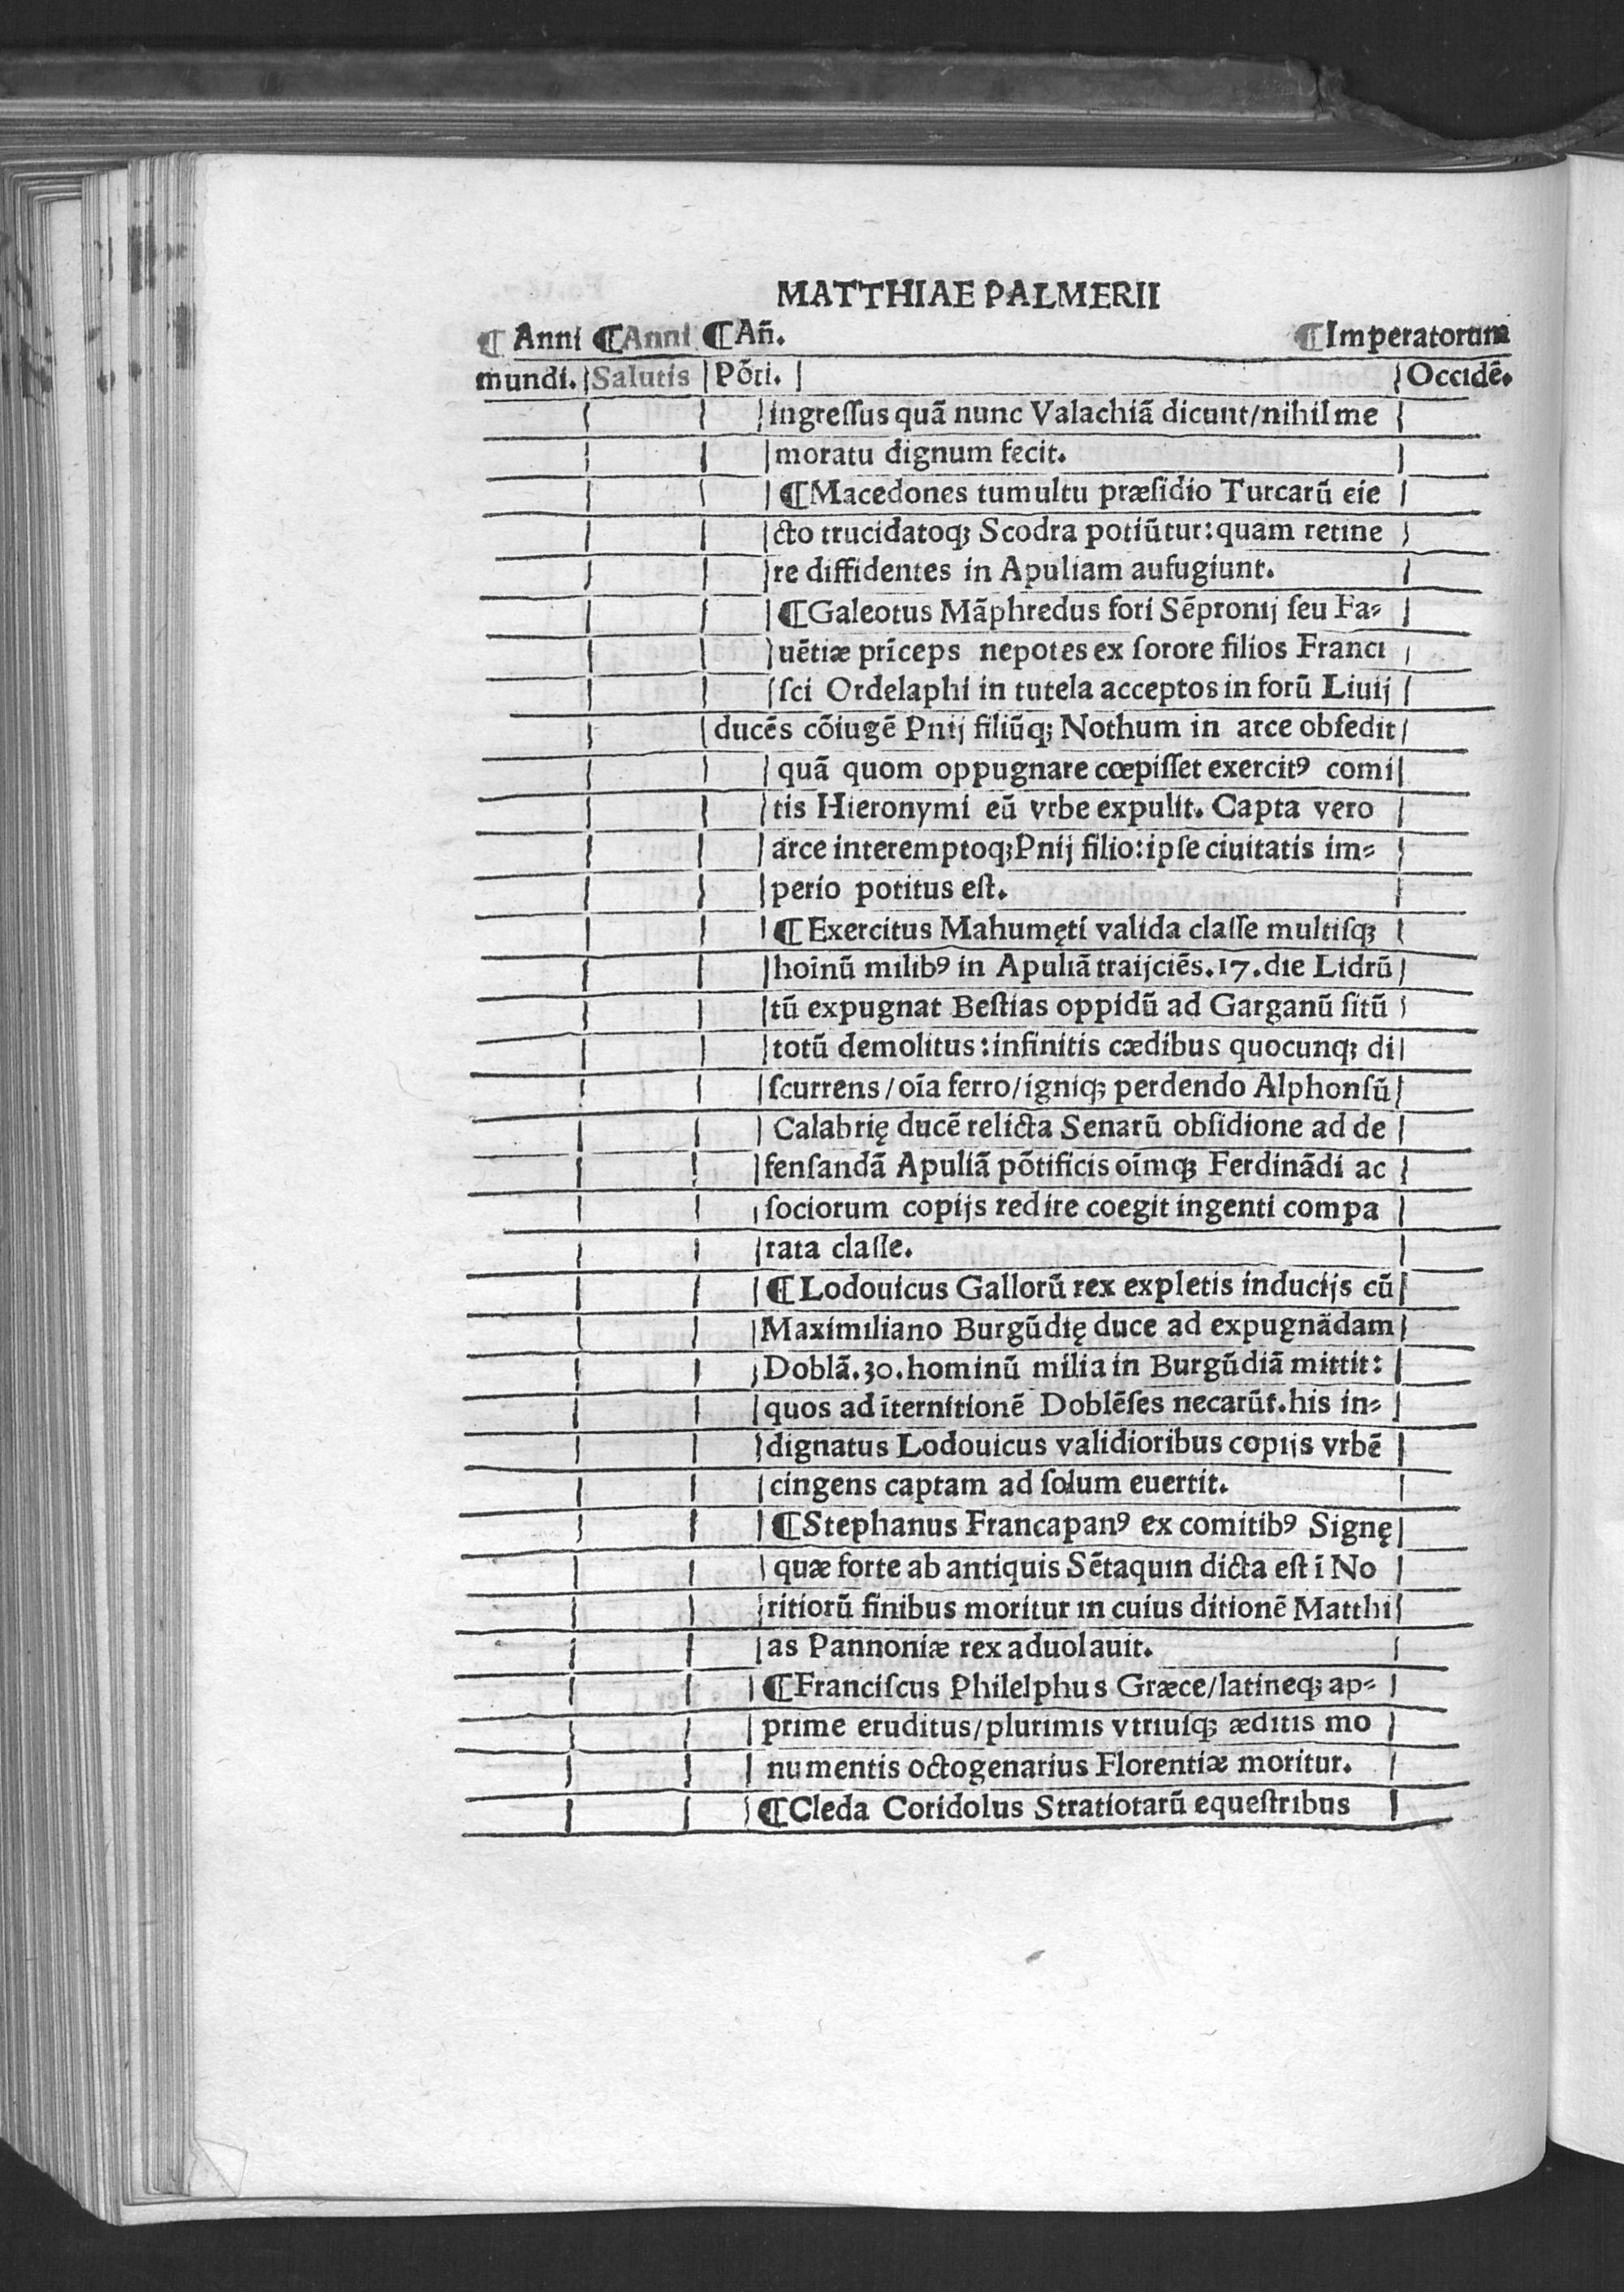 MATTHIAE PALMERII
¶ Anni ¶Anni ¶Añ. ¶Imperatorum
mundi. Salutis Põti. Occidẽ.
ingreſſus quã nunc Valachiã dicunt/nihil me
moratu dignum fecit.
¶Macedones tumultu præſidio Turcarũ eie
cto trucidatoq; Scodra potiũtur:quam retine
re diffidentes in Apuliam aufugiunt.
¶Galeotus Mãphredus fori Sẽpronij ſeu Fa⸗
uẽtiæ prĩceps nepotes ex ſorore filios Franci
ſci Ordelaphi in tutela acceptos in forũ Liuij
ducẽs cõiugẽ Pnij filiũq; Nothum in arce obſedit
quã quom oppugnare cœpiſſet exercitꝰ comi
tis Hieronymi eũ vrbe expulit. Capta vero
arce interemptoq;Pnij filio:ipſe ciuitatis im⸗
perio potitus eſt.
¶Exercitus Mahumęti valida claſſe multiſq;
hoĩnũ milibꝰ in Apuliã traijciẽs.17.die Lidrũ
tũ expugnat Beſtias oppidũ ad Garganũ ſitũ
totũ demolitus:infinitis cædibus quocunq; di
ſcurrens/oĩa ferro/igniq; perdendo Alphonſũ
Calabrię ducẽ relicta Senarũ obſidione ad de
fenſandã Apuliã põtificis oĩmq; Ferdinãdi ac
ſociorum copijs redire coegit ingenti compa
rata claſſe.
¶Lodouicus Gallorũ rex expletis inducijs cũ
Maximiliano Burgũdię duce ad expugnãdam
Doblã.30.hominũ milia in Burgũdiã mittit:
quos ad ĩternitionẽ Doblẽſes necarũt.his in⸗
dignatus Lodouicus validioribus copijs vrbẽ
cingens captam ad ſolum euertit.
¶Stęphanus Francapanꝰ ex comitibꝰ Signę
quæ forte ab antiquis Sẽtaquin dicta eſt ĩ No
ritiorũ finibus moritur in cuius ditionẽ Matthi
as Pannoniæ rex aduolauit.
¶Franciſcus Philelphus Græce/latineq; ap⸗
prime eruditus/plurimis vtriuſq; æditis mo
numentis octogenarius Florentiæ moritur.
¶Cleda Coridolus Stratiotarũ equeſtribus